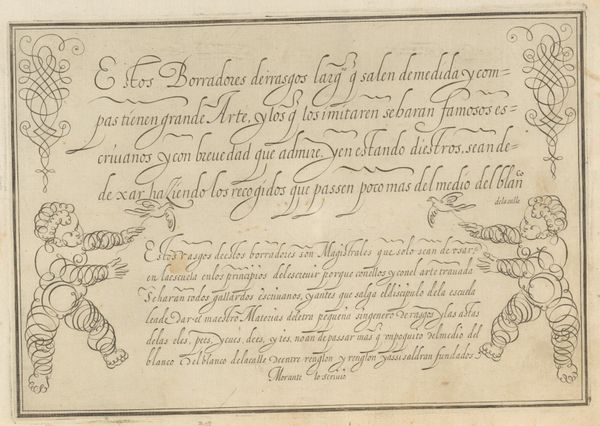 Estos Borradores de rrasgos largos q̃ salen de medida y com=
pas tienen grande Arte, y los q̃ los imitaren se haran famosos es=
criuanos y con breuedad que admire. Y en estando diestros, se an de=
dexar haziendo los recogidos que passen poco mas del medio del blanco
de la calle
Estos rasgos destos borradores son Magistrales que solo se an de usar
en la escuela en los principios del escreuir porque con ellos y con el arte trauada
Se haran todos gallardos escriuanos, y antes que salga el discipulo de la escuela
le a de dar el maestro Materias de letra pequeña sin genero de rasgos y las astas
de las eles, pees, y cues, dees, y tes, no an de passar mas q̃ un poquito del medio del
blanco del blanco de la calle de entre renglon y renglon y assi saldran fundados.
Morante lo scriuio